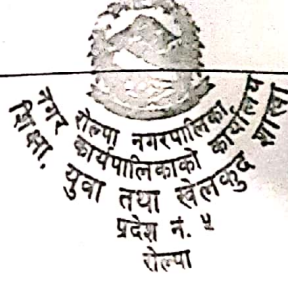 रोल्पा नगरपालिका
नगर कार्यपालिकाको कार्यालय
शिक्षा, युवा तथा खेलकुद शाखा
प्रदेश नं. ५
रोल्पा